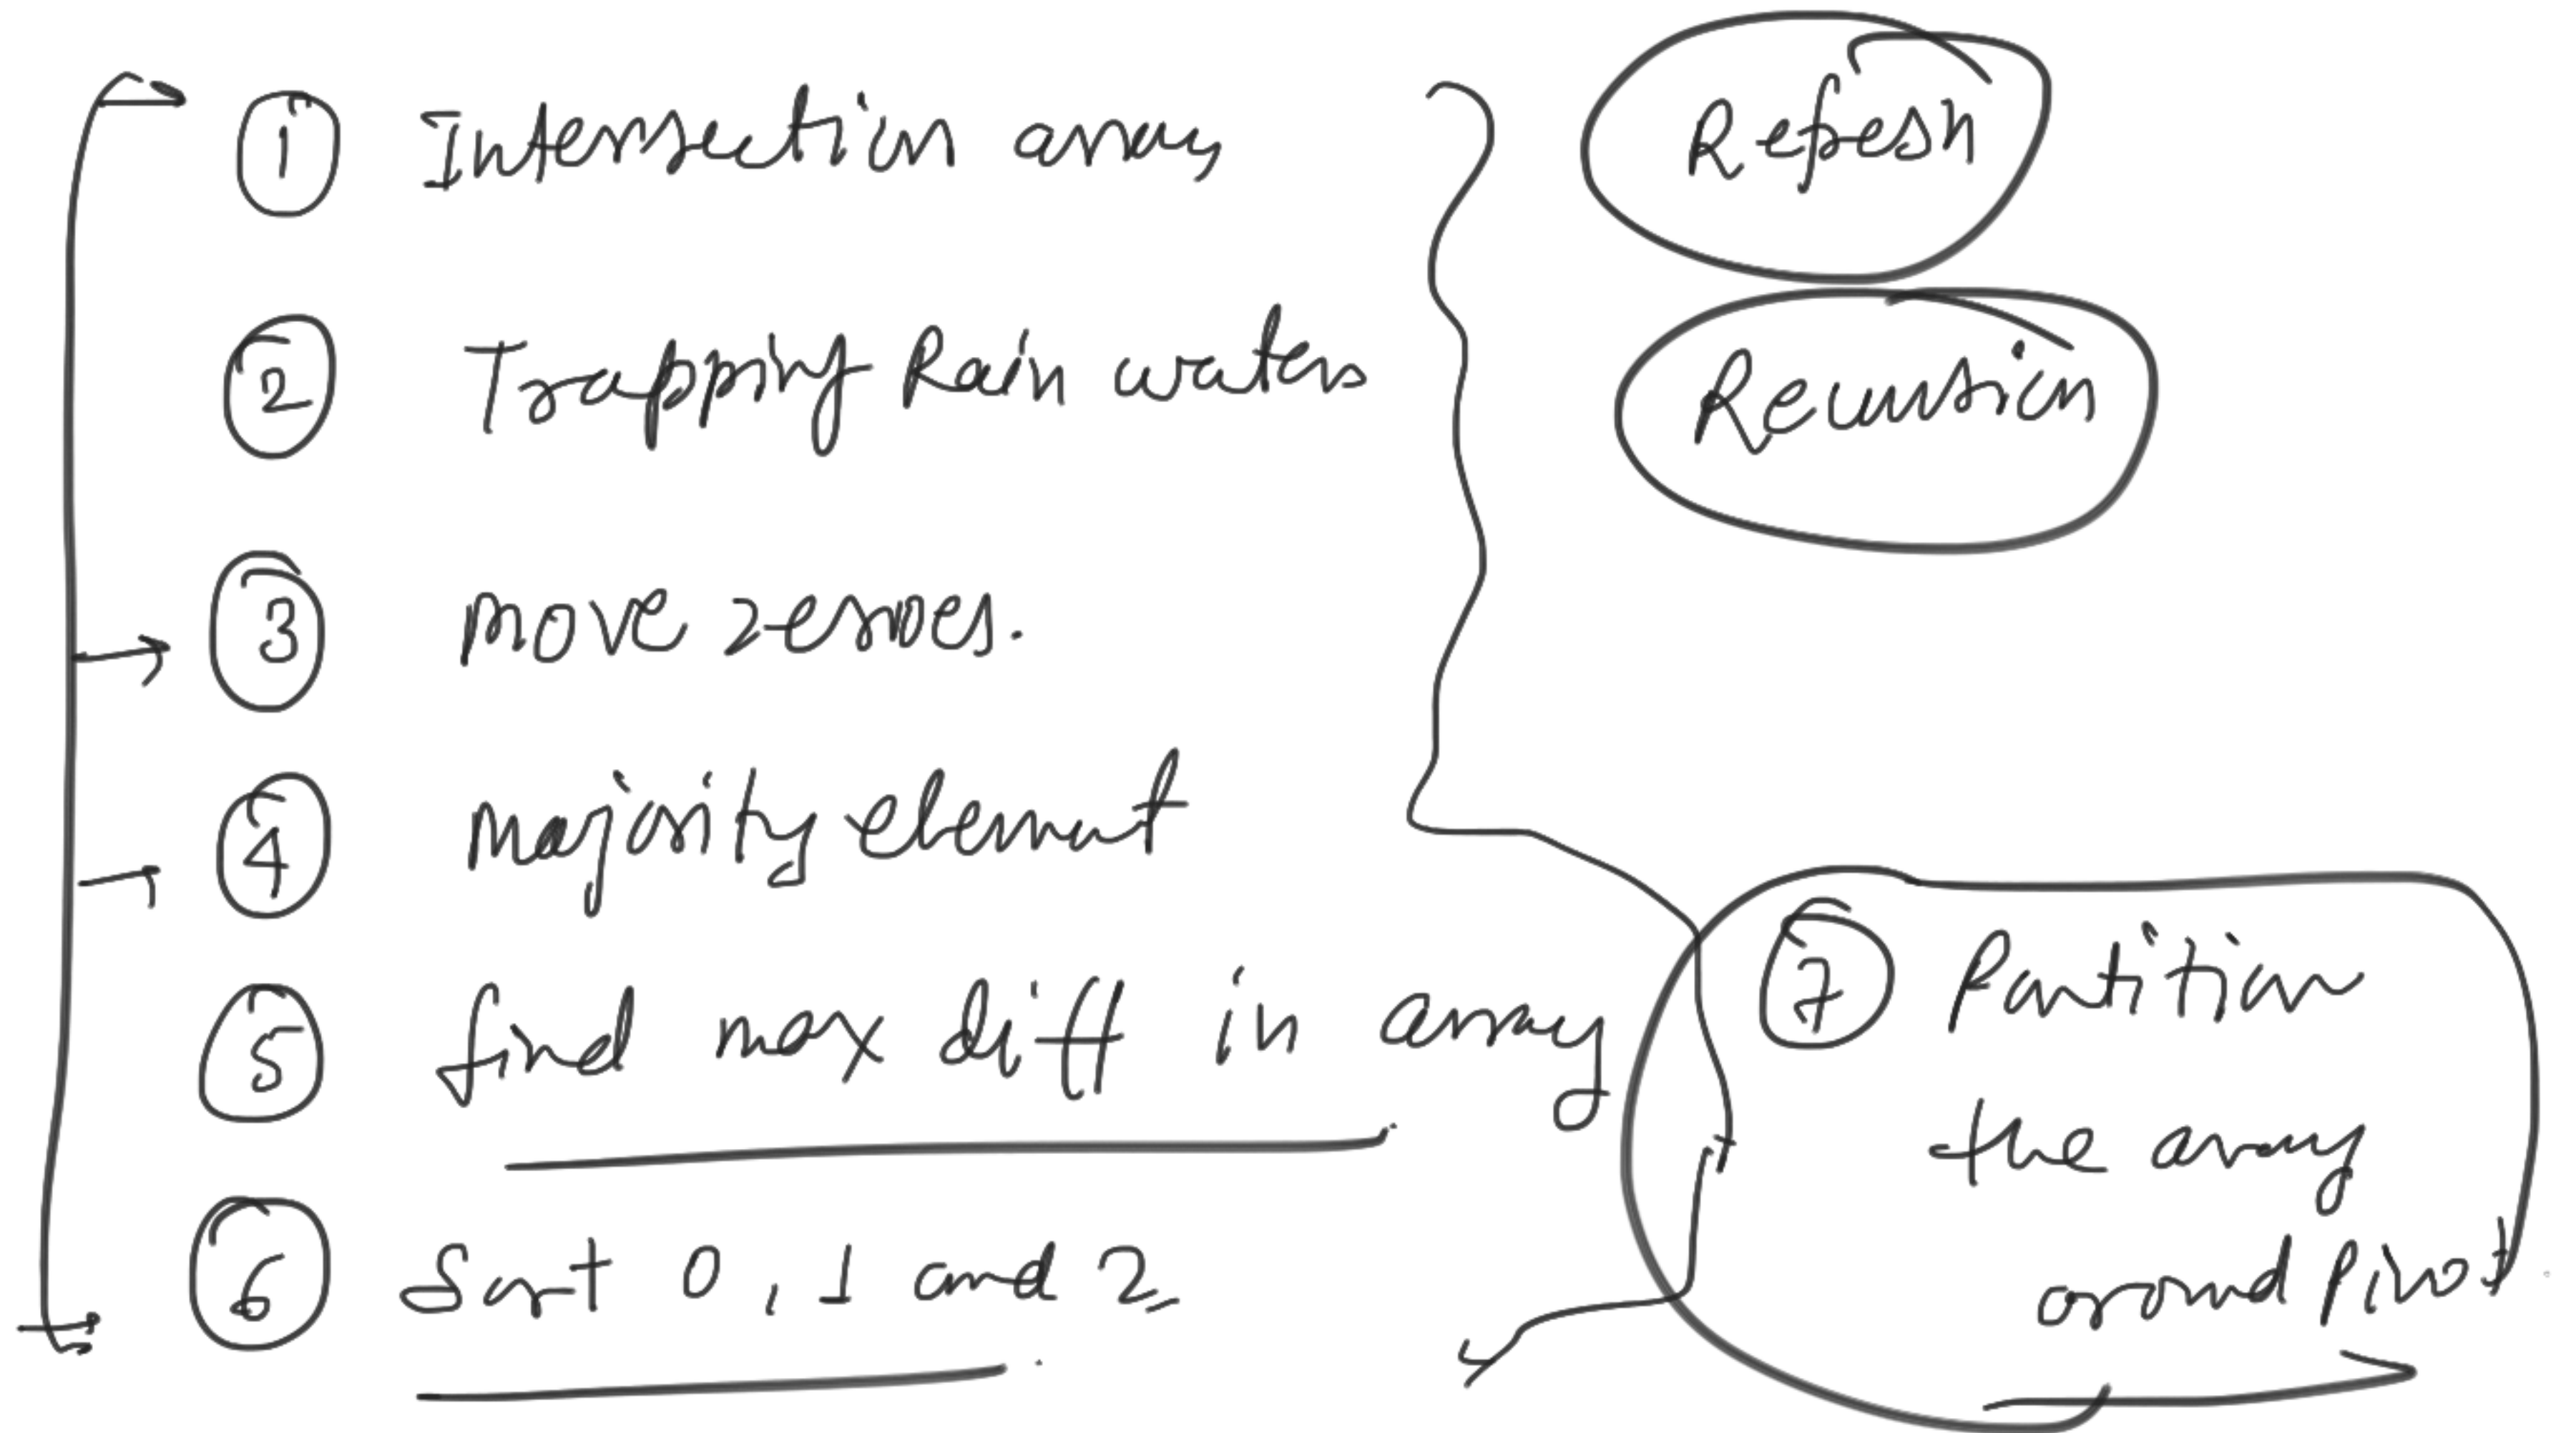 1 Intersection array
2 Trapping Rain waters
3 move zeroes.
4 majority element
5 find max diff in array
6 Sort 0, 1 and 2
Refesh
Recursion
7 Partition
the array
around Pivot